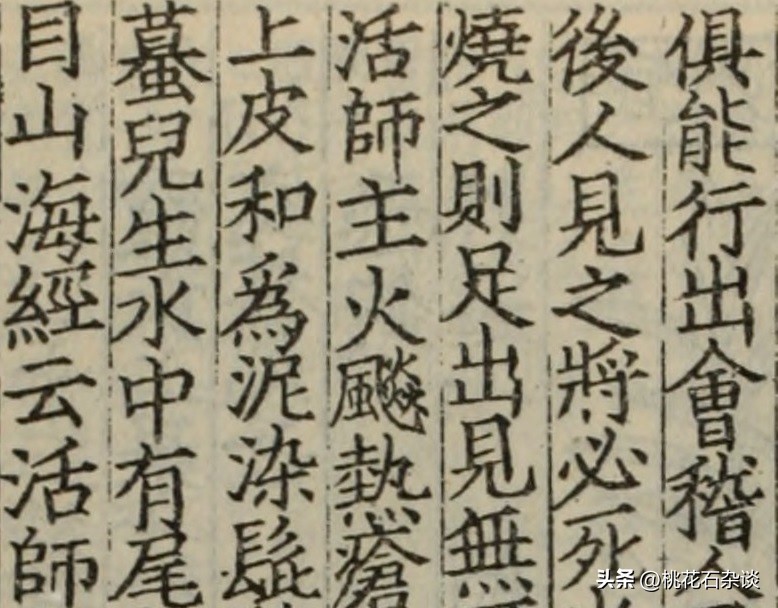 俱能行出會稽人
後人見之將必死
燒之則足出見無
活師主火飈熱瘡
上皮和爲泥染髭
蟇兒生水中有尾
目山海經云活師
头条 @桃花石杂谈